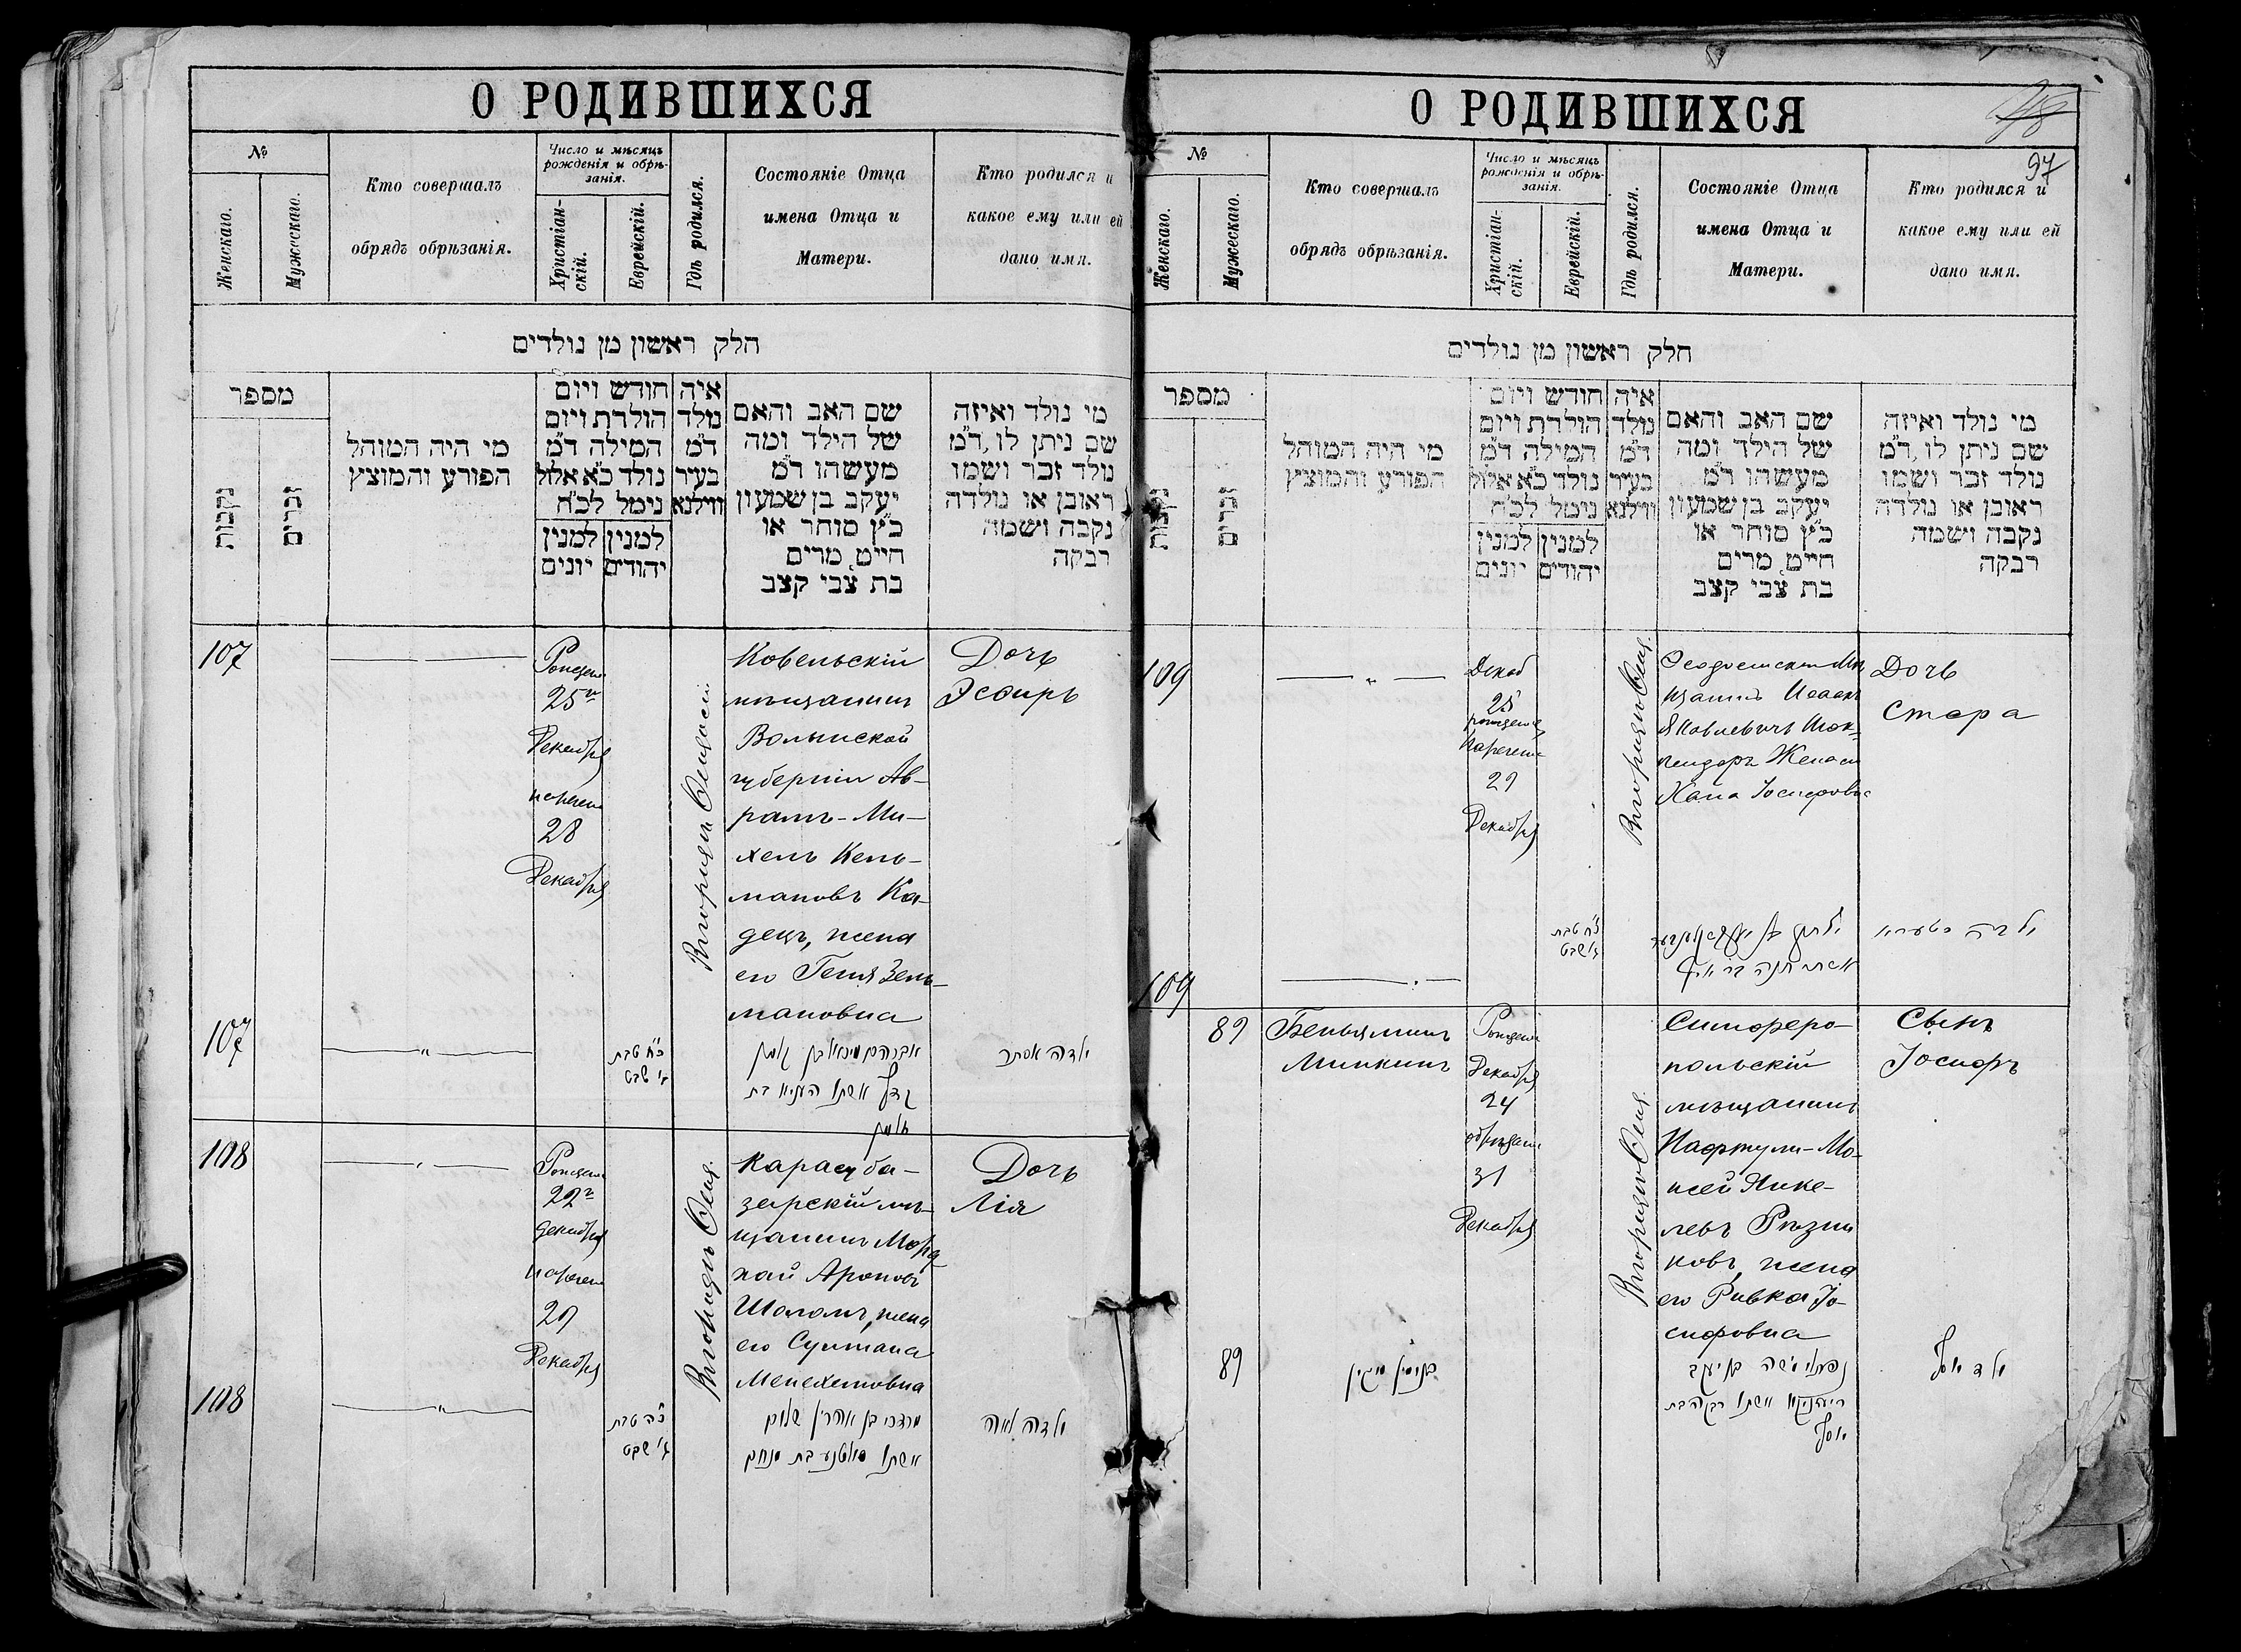 О РОДИВШИХСЯ
№
Женскаго.
Мужескаго.
Кто совершалъ
обрядъ обрѣзанія.
Число и мѣсяцъ
рожденія и обрѣ-
занія.
Христіан-
скій.
Еврейскій.
Гдѣ родился.
Состояніе Отца
имена Отца и
Матери.
Кто родился и
какое ему или ей
дано имя.
חלק ראשון מן נולדים
מספר
נקבות
זכרים
מי היה המוהל
הפורע והמוצץ
חודש ויום
הולדת ויום
המילה ד״מ
נולד כ״א אלול
נימל לכ״ח
למנין
יהודים
למנין
יונים
איה
נולד
ד״מ
בעיר
ווילנא
שם האב והאם
של הילד ומה
מעשהו ד״מ
יעקב בן שמעון
כ״ץ סוחר או
חייט, מרים
בת צבי קצב
מי נולד ואיזה
שם ניתן לו, ד״מ
נולד זכר ושמו
ראובן או נולדה
נקבה ושמה
רבקה
107
25
Декабря
28
Декабря
Ковельскій
мѣщанинъ
Волынской
губерніи Ав-
рамъ-Ми-
хель Кель-
мановъ Ка-
децъ, жена
его Геня Зель-
мановна
Дочь
Эсѳирь
107
כ״ח טבת
ב׳ שבט
אשתו
בת
ילדה אסתר
108
декабря
29
Декабря
Карасуба-
зарскій мѣ-
щанинъ Морд
хай Ароновъ
Шоломъ, жена
его Султана
Менехемовна
Дочь
Лія
108
טבת
שבט
מרדכי בן אהרן שלום
אשתו סולטנע בת מנחם
ילדה לאה
О РОДИВШИХСЯ
97
№
Женскаго.
Мужескаго.
Кто совершалъ
обрядъ обрѣзанія.
Число и мѣсяцъ
рожденія и обрѣ-
занія.
Христіан-
скій.
Еврейскій.
Гдѣ родился.
Состояніе Отца
имена Отца и
Матери.
Кто родился и
какое ему или ей
дано имя.
חלק ראשון מן נולדים
מספר
נקבות
זכרים
מי היה המוהל
הפורע והמוצץ
חודש ויום
הולדת ויום
המילה ד״מ
נולד כ״א אלול
נימל לכ״ח
למנין
יהודים
למנין
יונים
איה
נולד
ד״מ
בעיר
ווילנא
שם האב והאם
של הילד ומה
מעשהו ד״מ
יעקב בן שמעון
כ״ץ סוחר או
חייט, מרים
בת צבי קצב
מי נולד ואיזה
שם ניתן לו, ד״מ
נולד זכר ושמו
ראובן או נולדה
נקבה ושמה
רבקה
109
Декаб
25
29
Декабря
щанинъ Исаакъ
Яковлевичъ
Жена
Хана Іосифовна
Дочь
Стера
טבת
שבט
אשתו חנה
ילדה סטערא
109
89
Беньяминъ
Минкинъ
Декабря
24
31
Декабря
Симферо-
польскій
мѣщанинъ
Нафтули-Мо-
исей Янке-
левъ Рѣзни
ковъ, жена
его Ривка Іо-
сифовна
Сынъ
Іосифъ
89
בנימין מינקין
נפתלי משה בן יעקב
אשתו רבקה בת
יוסף
ילד יוסף